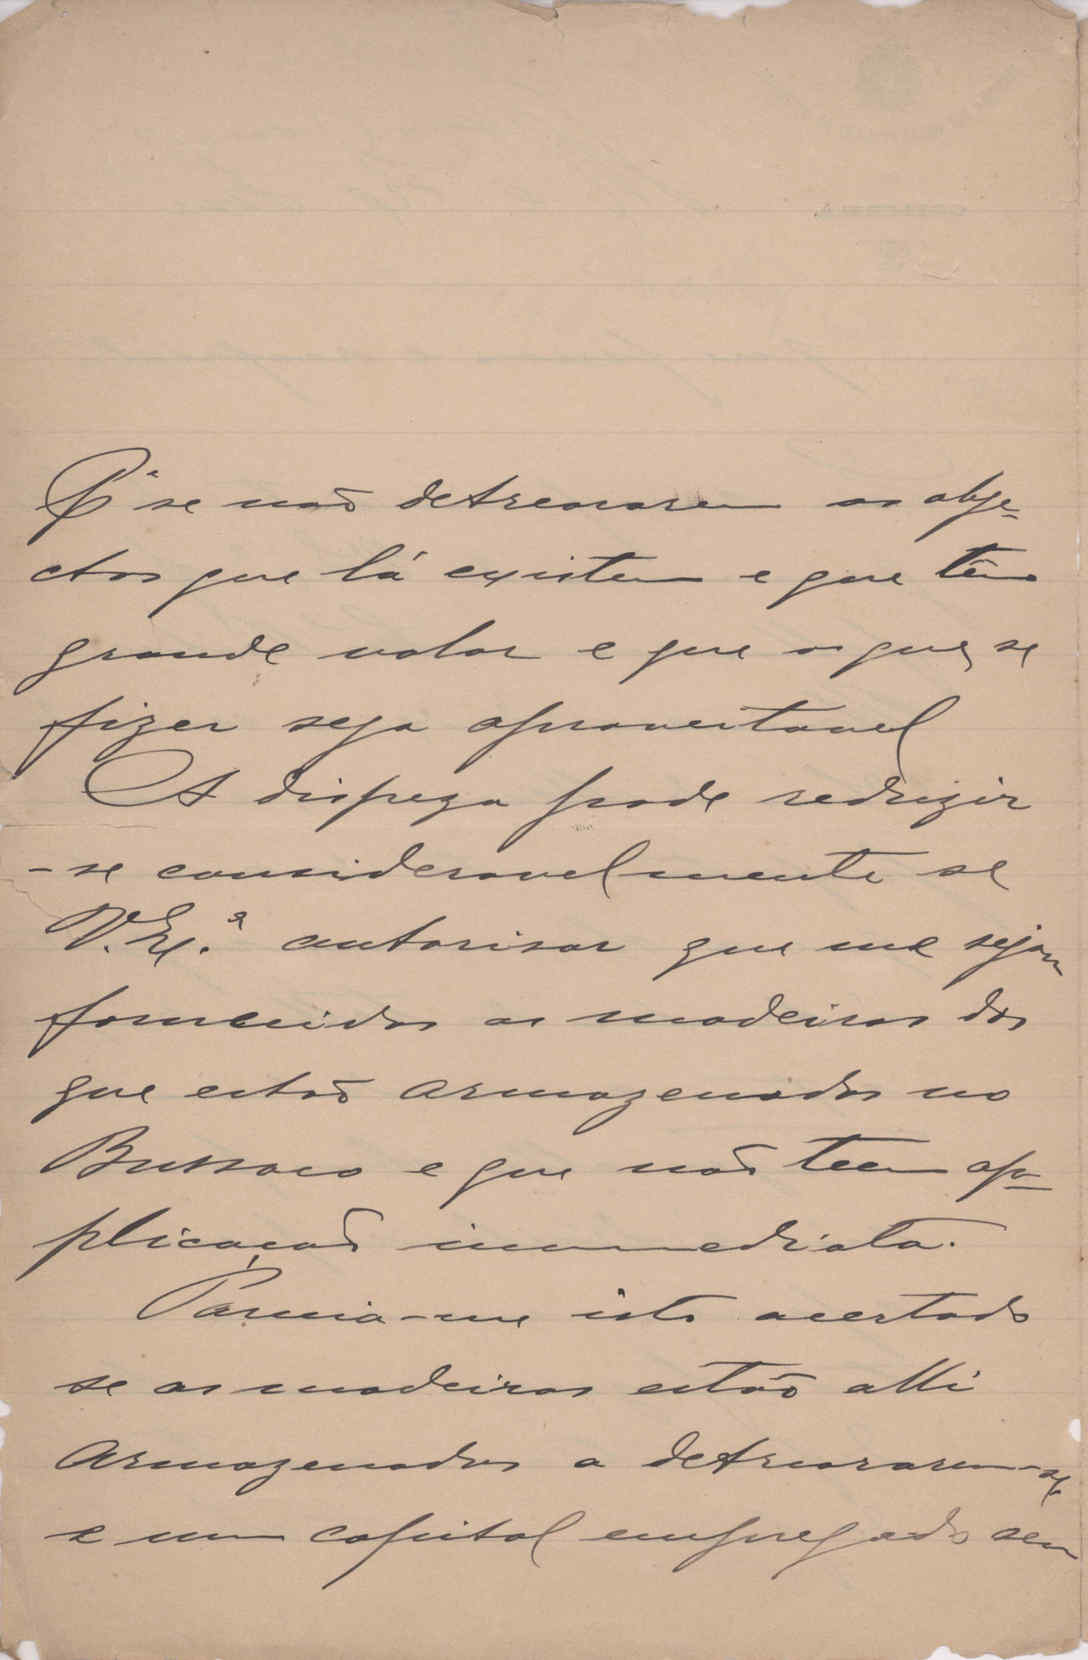 Pª se não detreorarem os obje-
ctos que lá existem e que têm
grande valor e que o que se
fizer seja aproveitavel
A dispeza pode reduzir
-se consideravelmente se
V. Exª autorisar que me sejam
fornecidas as madeiras das
que estão armazenadas no
Bussaco e que não teem ap-
plicação immediata.
Parecia-me isto acertado
se as madeiras estão alli
armazenadas a detreorarem-se
e um capital empregado sem